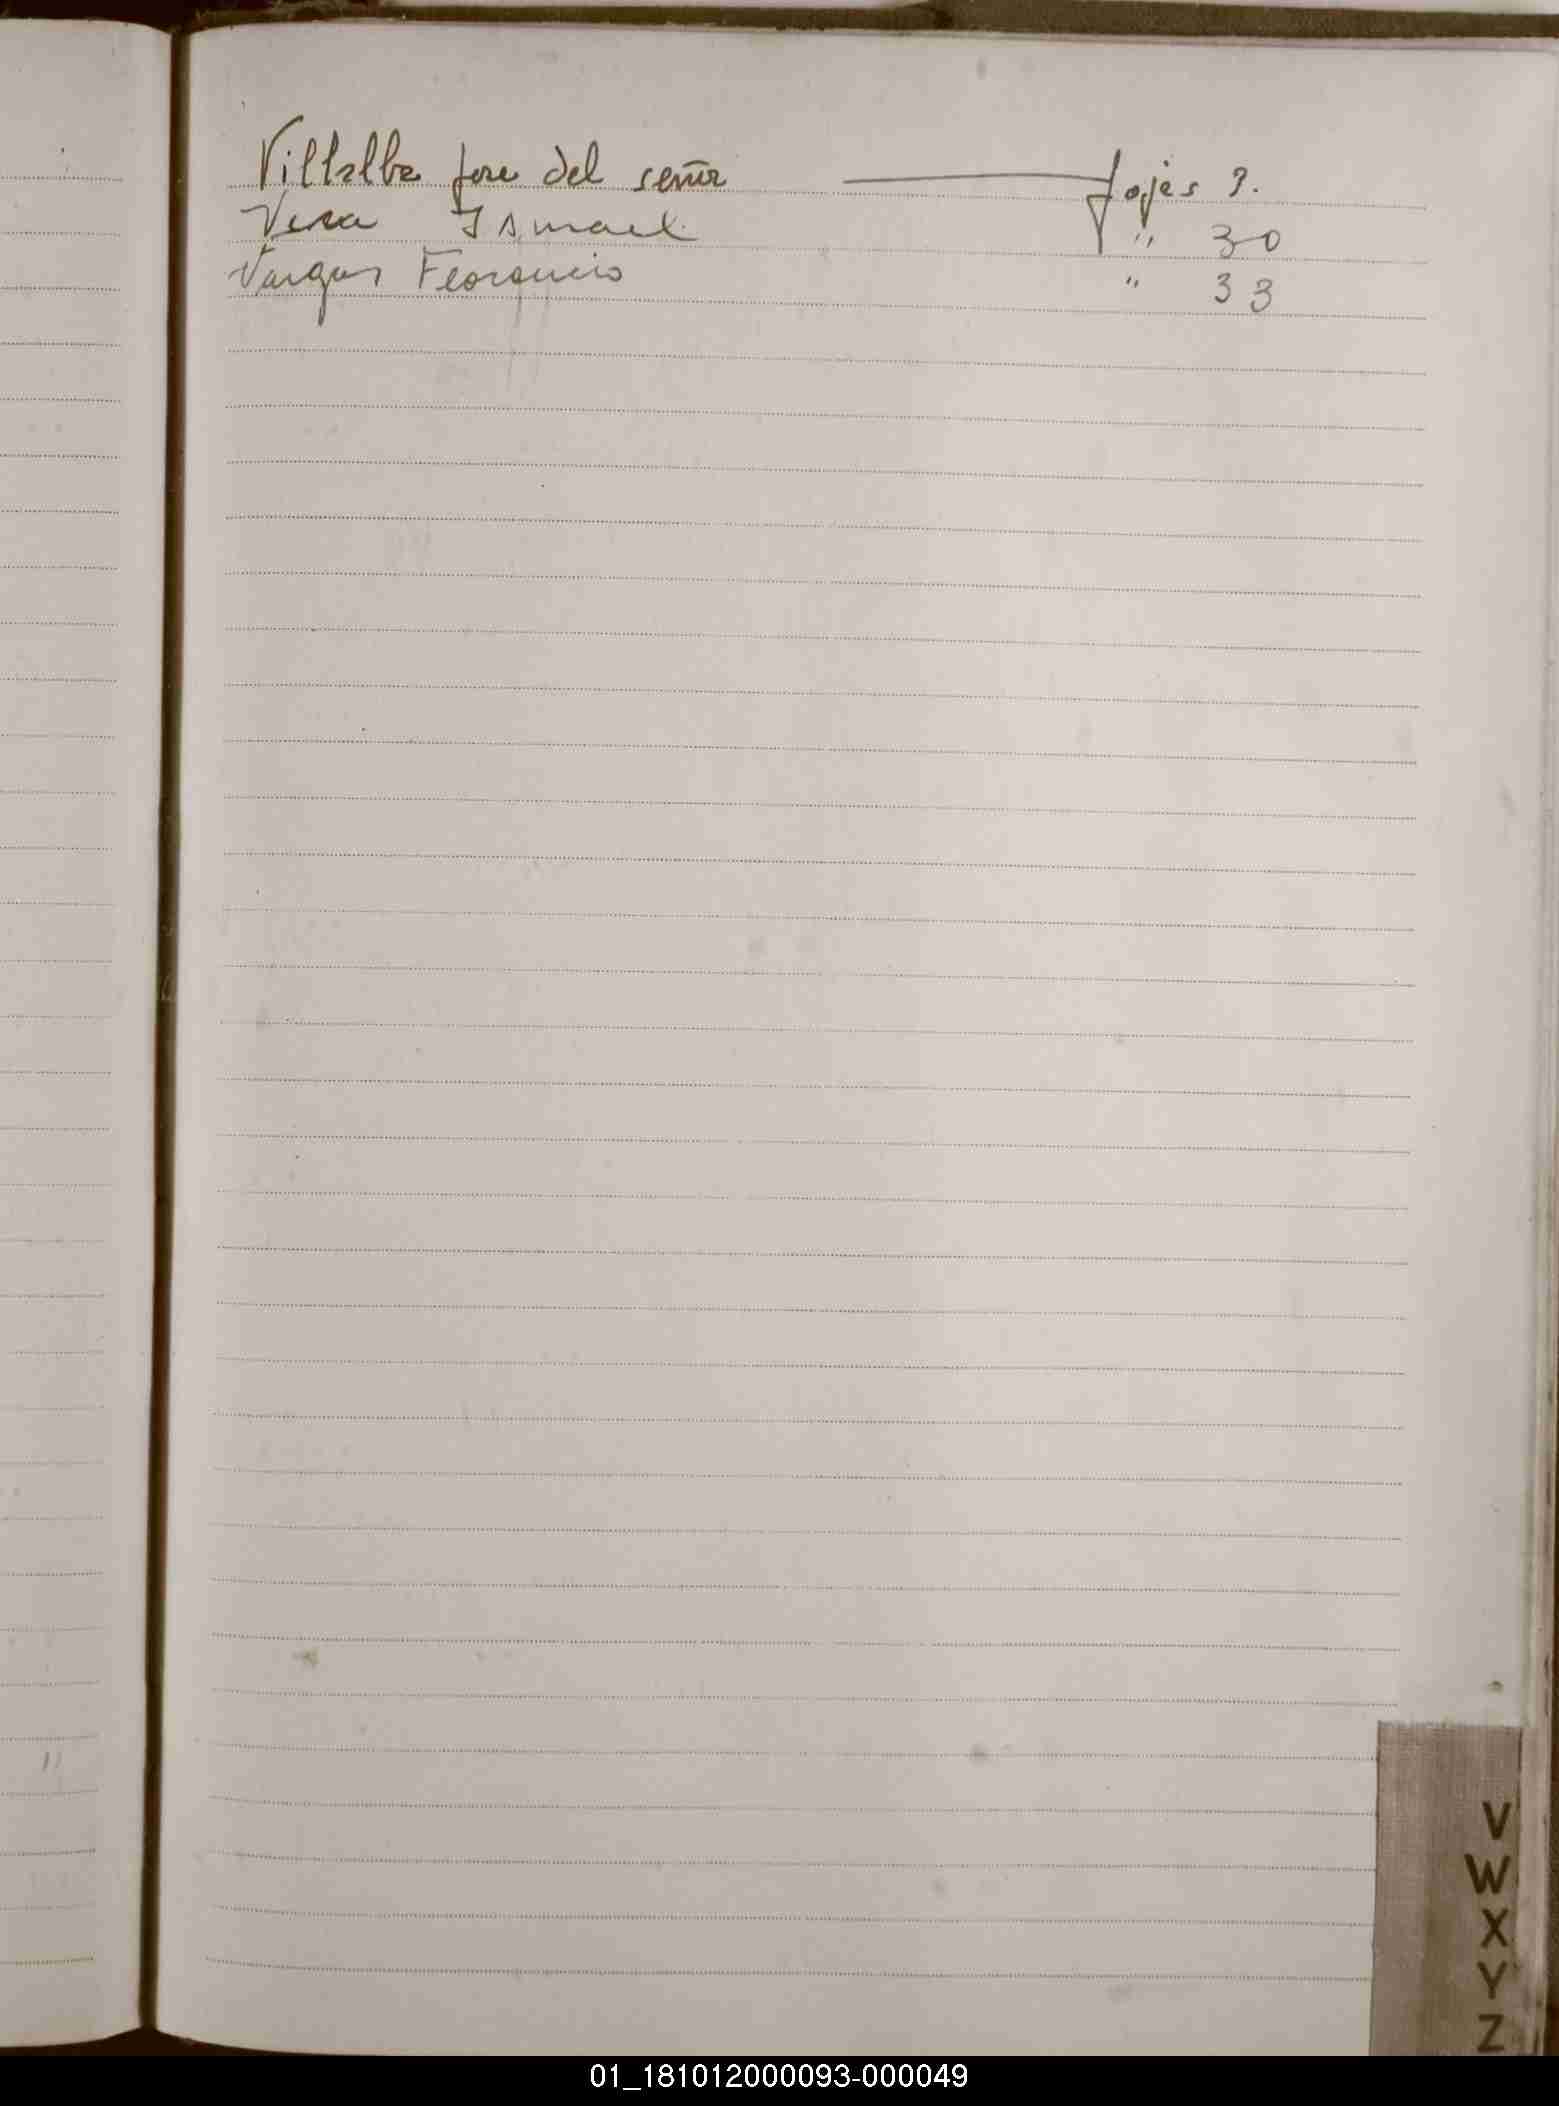 Villalba jose del señor fojas 9.
Vera Ismael " 30
Vargas Florencio " 33
V
W
X
Y
Z
01_181012000093-000049